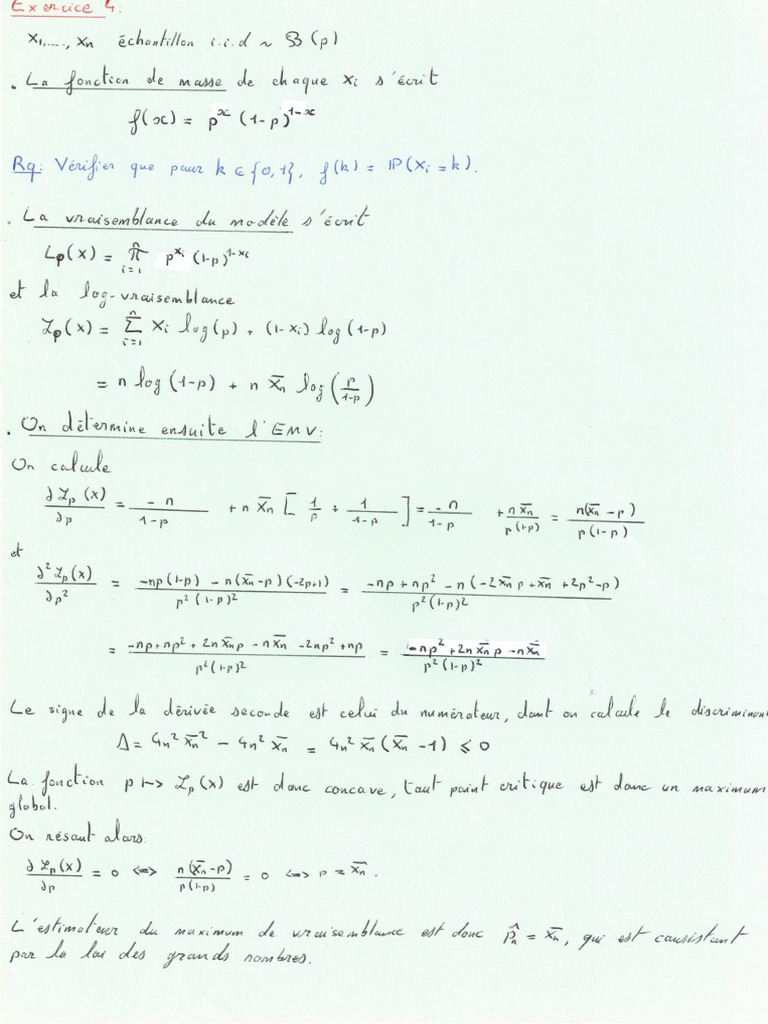 Exercice 4:
X₁,..., Xₙ échantillon i.i.d ~ B(p)
. La fonction de masse de chaque Xᵢ s'écrit
f(x) = p^x (1-p)^{1-x}
Rq: Vérifier que pour k ∈ {0,1}, f(k) = IP(Xᵢ = k).
. La vraisemblance du modèle s'écrit
L_p(X) = ∏_{i=1}^{n} p^{Xᵢ} (1-p)^{1-Xᵢ}
et la log-vraisemblance
ℒ_p(X) = Σ_{i=1}^{n} Xᵢ log(p) + (1-Xᵢ) log(1-p)
= n log(1-p) + n X̄ₙ log(p/(1-p))
. On détermine ensuite l'EMV:
On calcule
∂ℒ_p(X)/∂p = -n/(1-p) + n X̄ₙ [1/p + 1/(1-p)] = -n/(1-p) + nX̄ₙ/(p(1-p)) = n(X̄ₙ - p)/(p(1-p))
et
∂²ℒ_p(X)/∂p² = (-np(1-p) - n(X̄ₙ-p)(-2p+1))/(p²(1-p)²) = (-np + np² - n(-2X̄ₙp + X̄ₙ + 2p² - p))/(p²(1-p)²)
= (-np + np² + 2nX̄ₙp - nX̄ₙ - 2np² + np)/(p²(1-p)²) = (-np² + 2nX̄ₙp - nX̄ₙ)/(p²(1-p)²)
Le signe de la dérivée seconde est celui du numérateur, dont on calcule le discriminant
Δ = 4n² X̄ₙ² - 4n² X̄ₙ = 4n² X̄ₙ (X̄ₙ - 1) ≤ 0
La fonction p ↦ ℒ_p(X) est donc concave, tout point critique est donc un maximum
global.
On résout alors:
∂ℒ_p(X)/∂p = 0 <=> n(X̄ₙ-p)/(p(1-p)) = 0 <=> p = X̄ₙ.
L'estimateur du maximum de vraisemblance est donc p̂ₙ = X̄ₙ, qui est consistant
par la loi des grands nombres.